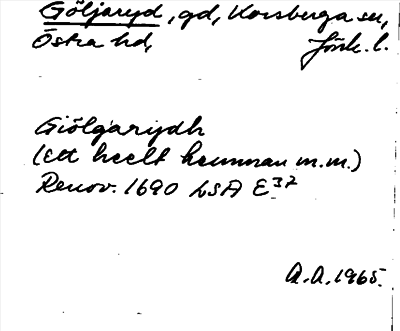 Göljaryd, gd, Korsberga sn,
Östra hd, Jönk. l.
Giölgarydh
(Ett heelt hemman m.m.)
Renov. 1690 LSA E³²
A.A. 1965.